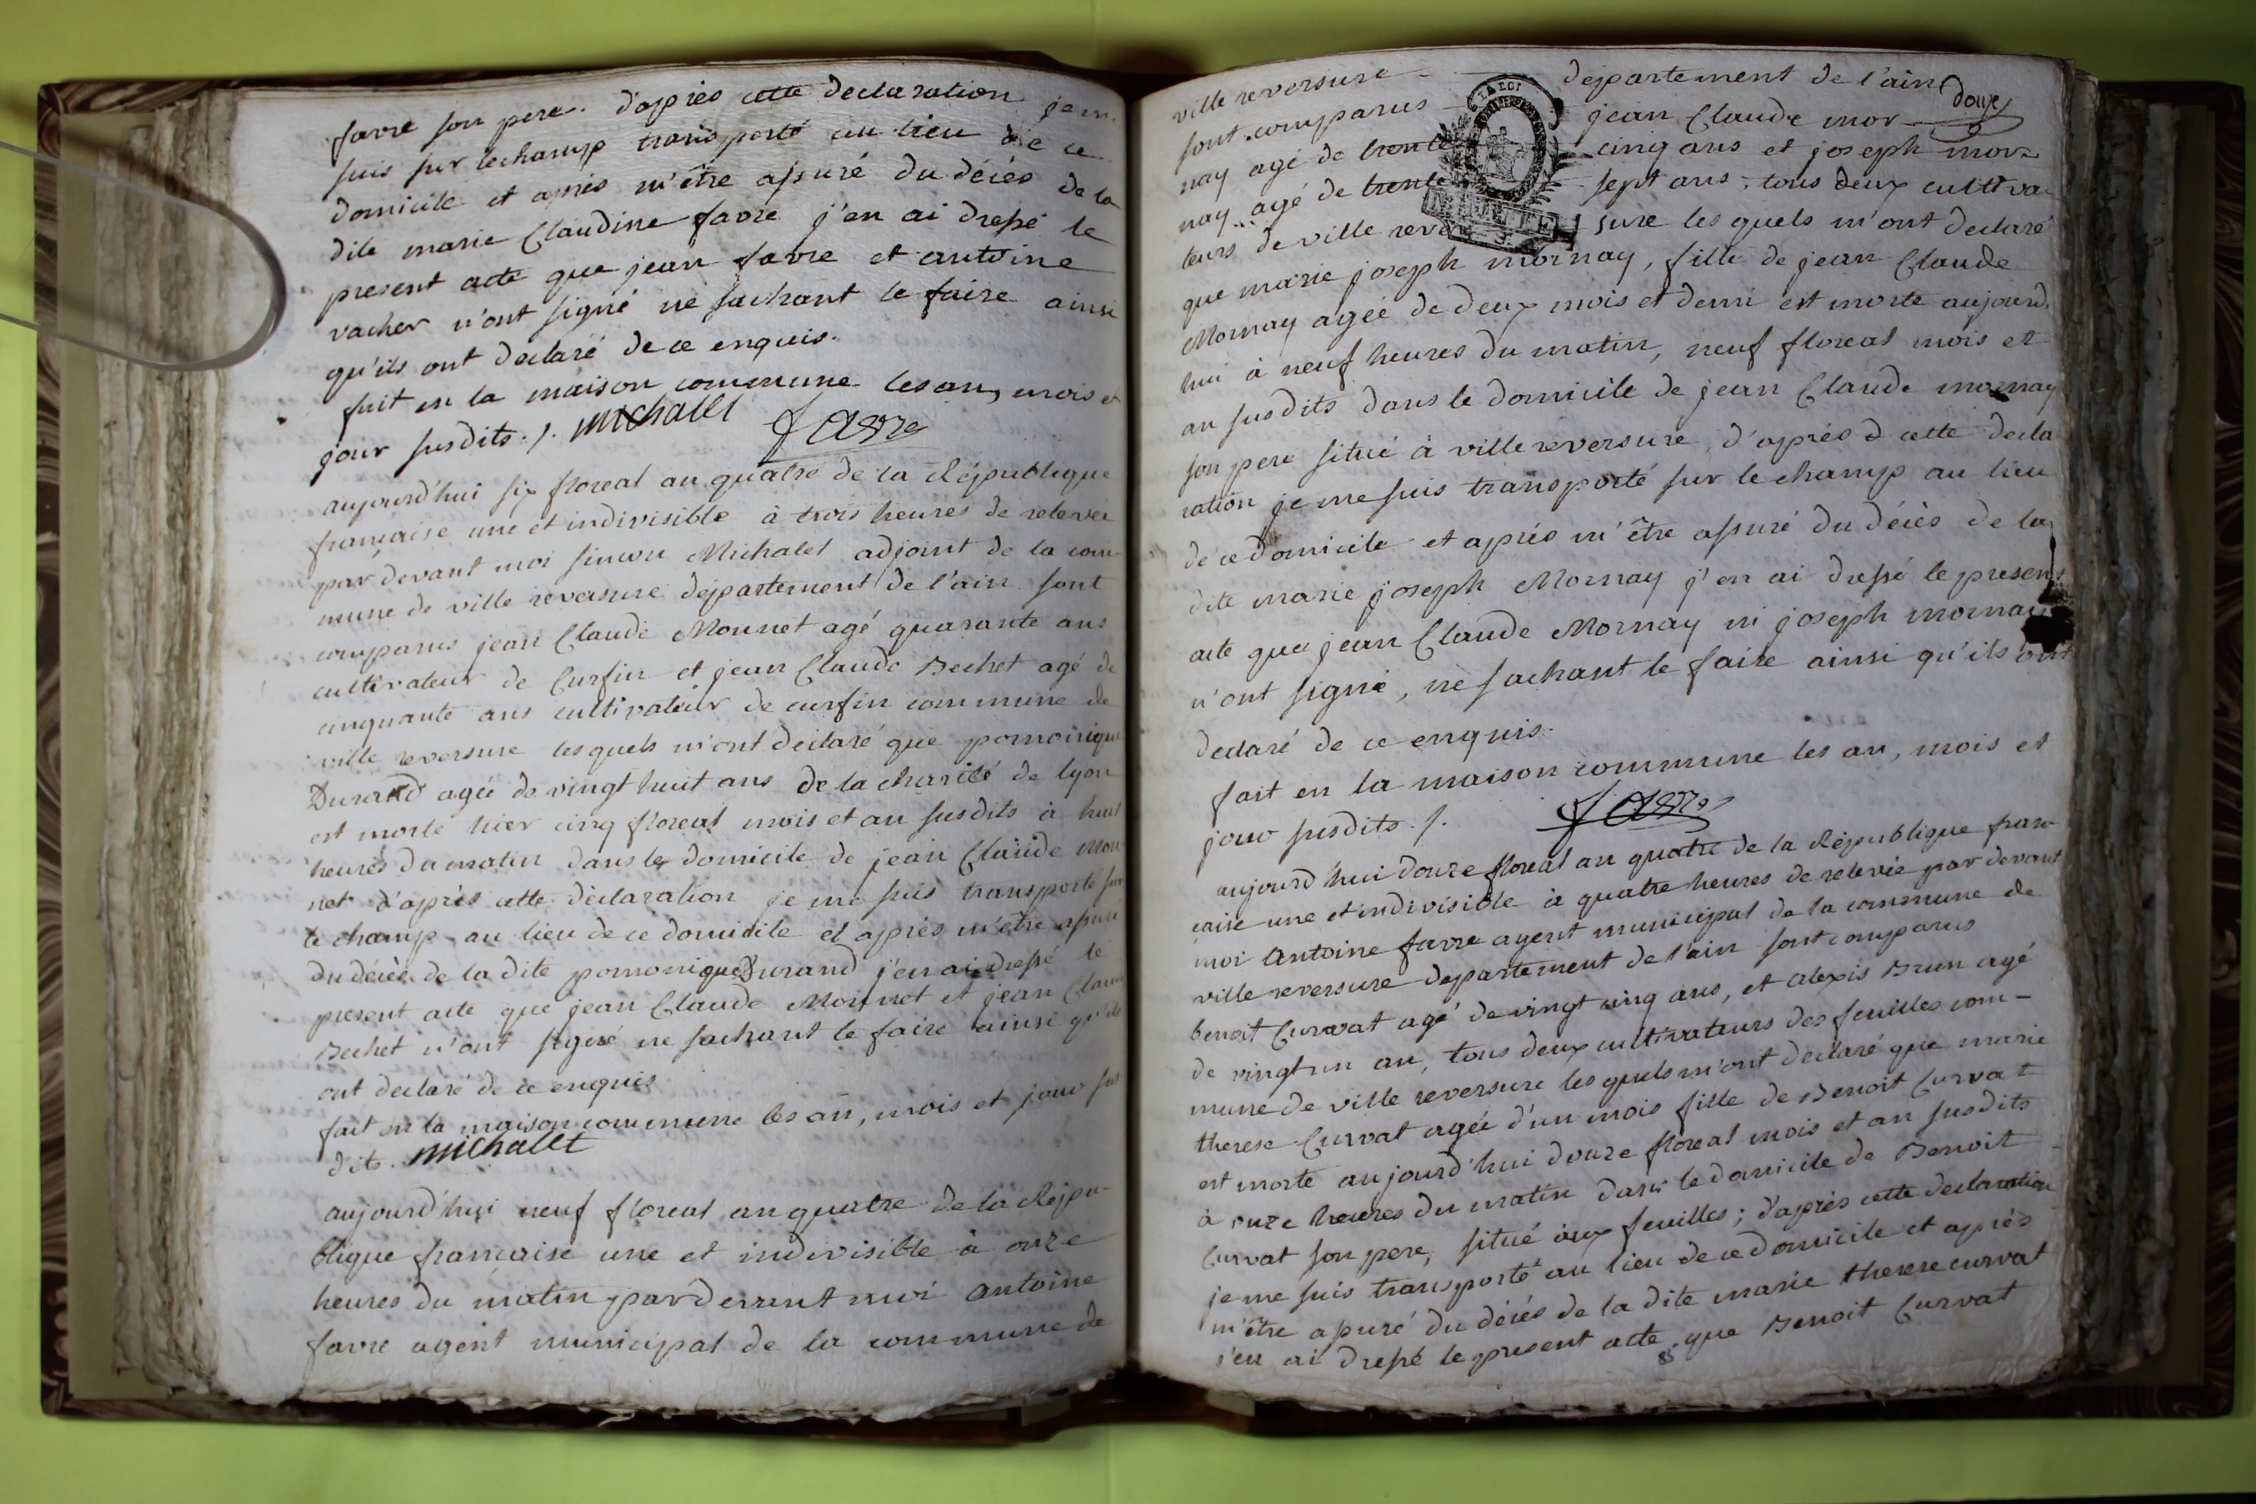 favre son pere. d'après cette declaration je m.
suis sur lechamp transporté au lieu de ce
domicile et après m'être assuré du décés de la
dite marie Claudine favre j'en ai dressé le
present acte que jean favre et antoine
vacher n'ont signé ne sachant le faire ainsi
qu'ils ont declaré de ce enquis.
fait en la maison commune les an, mois et
jour susdits ./. michallet favre
aujourd'hui six floreal an quatre de la République
française une et indivisible à trois heures de relevée
par devant moi simon Michalet adjoint de la com-
mune de ville reversure departement de l'ain sont
comparus jean Claude Monnet agé quarante ans
cultivateur de Curfin et jean Claude Bechet agé de
cinquante ans cultivateur de curfin commune de
ville reversure lesquels m'ont declaré que pomonique
Durand agée de vingt huit ans de la charité de lyon
est morte hier cinq floreal mois et an susdits à huit
heures du matin dans le domicile de jean Claude Mon-
net d'après cette declaration je me suis transporté sur
le champ au lieu de ce domicile et après m'être assuré
du décès de la dite pomonique Durand j'en ai dressé le
present acte que jean Claude Monnet et jean Claude
Bechet n'ont signé ne sachant le faire ainsi qu'ils
ont declaré de ce enquis
fait en la maison commune les an, mois et jour sus
dits. michallet
aujourd'hui neuf floreal an quatre de la Répu-
blique française une et indivisible à onze
heures du matin par devant moi antoine
favre agent municipal de la commune de
ville reversure departement de l'ain
douze
sont comparus jean Claude mor-
nay agé de trente cinq ans et joseph mor-
nay agé de trente sept ans, tous deux cultiva-
teurs de ville reversure les quels m'ont declaré
que marie joseph mornay, fille de jean Claude
Mornay agée de deux mois et demi est morte aujourd.
hui à neuf heures du matin, neuf floreal mois et
an susdits dans le domicile de jean Claude mornay
son pere situé à ville reversure, d'après d cette decla
ration je me suis transporté sur le champ au lieu
de ce domicile et après m'être assuré du décès de la
dite marie joseph Mornay j'en ai dressé le present
acte que jean Claude Mornay ni joseph mornay
n'ont signé, ne sachant le faire ainsi qu'ils ont
declaré de ce enquis.
fait en la maison commune les an, mois et
jour susdits ./. favre
aujourd'hui douze floreal an quatre de la République fran-
çaise une et indivisible à quatre heures de relevée par devant
moi Antoine favre agent municipal de la commune de
ville reversure departement de l'ain sont comparus
benoit Curvat agé de vingt cinq ans, et alexis Brun agé
de vingt un an, tous deux cultivateurs des feuilles com-
mune de ville reversure les quels m'ont declaré que marie
therese Curvat agée d'un mois fille de Benoit Curvat
est morte aujourd'hui douze floreal mois et an susdits
à onze heures du matin dans le domicile de Benoit
Curvat son pere, situé aux feuilles; d'après cette declaration
je me suis transporté au lieu de ce domicile et après
m'être assuré du décés de la dite marie therese curvat
j'en ai dressé le present acte que Benoit Curvat